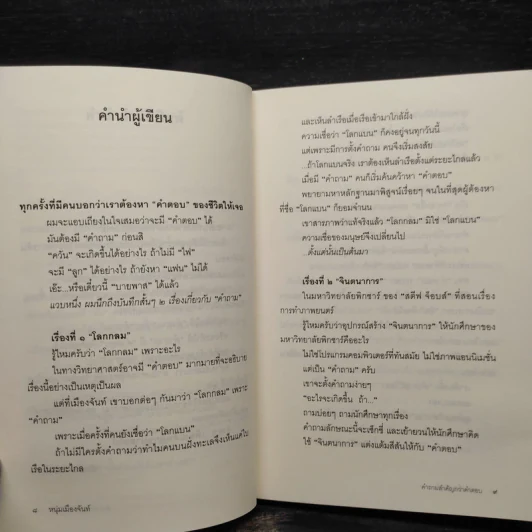 คำนำผู้เขียน
ทุกครั้งที่มีคนบอกว่าเราต้องหา "คำตอบ" ของชีวิตให้เจอ
ผมจะแอบเถียงในใจเสมอว่าจะมี "คำตอบ" ได้
มันต้องมี "คำถาม" ก่อนสิ
"ควัน" จะเกิดขึ้นได้อย่างไร ถ้าไม่มี "ไฟ"
จะมี "ลูก" ได้อย่างไร ถ้ายังหา "แฟน" ไม่ได้
เอ๊ะ...หรือเดี๋ยวนี้ "บายพาส" ได้แล้ว
แวบหนึ่ง ผมนึกถึงบันทึกสั้นๆ ๒ เรื่องเกี่ยวกับ "คำถาม"
เรื่องที่ ๑ "โลกกลม"
รู้ไหมครับว่า "โลกกลม" เพราะอะไร
ในทางวิทยาศาสตร์อาจมี "คำตอบ" มากมายที่จะอธิบาย
เรื่องนี้อย่างเป็นเหตุเป็นผล
แต่ที่เมืองจันท์ เขาบอกต่อๆ กันมาว่า "โลกกลม" เพราะ
"คำถาม"
เพราะเมื่อครั้งที่คนยังเชื่อว่า "โลกแบน"
ถ้าไม่มีใครตั้งคำถามว่าทำไมคนบนฝั่งทะเลจึงเห็นแค่ใบ
เรือในระยะไกล
๘ หนุ่มเมืองจันท์
และเห็นลำเรือเมื่อเรือเข้ามาใกล้ฝั่ง
ความเชื่อว่า "โลกแบน" ก็คงอยู่จนทุกวันนี้
แต่เพราะมีการตั้งคำถาม คนจึงเริ่มสงสัย
...ถ้าโลกแบนจริง เราต้องเห็นลำเรือตั้งแต่ระยะไกลแล้ว
เมื่อมี "คำถาม" คนก็เริ่มค้นคว้าหา "คำตอบ"
พยายามหาหลักฐานมาพิสูจน์เรื่อยๆ จนในที่สุดผู้ต้องหา
ที่ชื่อ "โลกแบน" ก็ยอมจำนน
เขาสารภาพว่าแท้จริงแล้ว "โลกกลม" มิใช่ "โลกแบน"
ความเชื่อของมนุษย์จึงเปลี่ยนไป
...ตั้งแต่นั้นเป็นต้นมา
เรื่องที่ ๒ "จินตนาการ"
ในมหาวิทยาลัยพิกซาร์ ของ "สตีฟ จ็อบส์" ที่สอนเรื่อง
การทำภาพยนตร์
รู้ไหมครับว่าอุปกรณ์สร้าง "จินตนาการ" ให้นักศึกษาของ
มหาวิทยาลัยพิกซาร์คืออะไร
ไม่ใช่โปรแกรมคอมพิวเตอร์ที่ทันสมัย ไม่ใช่ภาพแอนนิเมชั่น
แต่เป็น "คำถาม" ครับ
เขาจะตั้งคำถามง่ายๆ
"อะไรจะเกิดขึ้น ถ้า..."
ถามบ่อยๆ ถามนักศึกษาทุกเรื่อง
คำถามลักษณะนี้จะเซ็กซี่ และเย้ายวนให้นักศึกษาคิด
ใช้ "จินตนาการ" แต่งแต้มสีสันให้กับ "คำตอบ"
คำถามสำคัญกว่าคำตอบ ๙